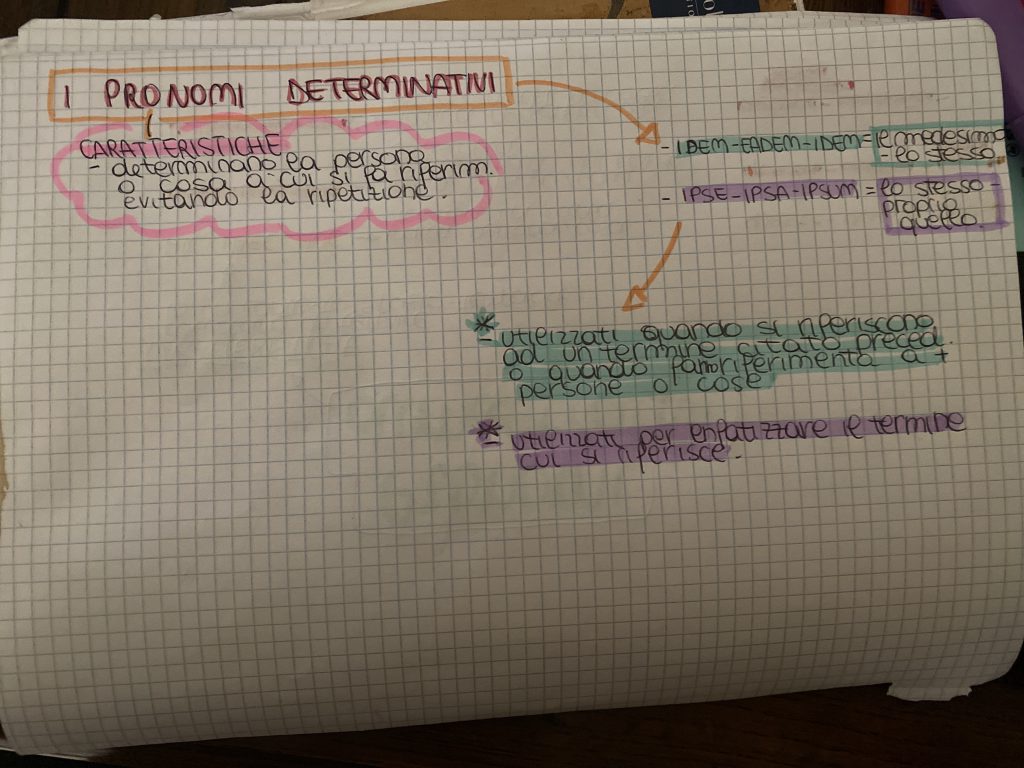 I PRONOMI DETERMINATIVI
CARATTERISTICHE
- determinano la persona
o cosa a cui si fa riferim.
evitando la ripetizione.
- IDEM-EADEM-IDEM= il medesimo
- lo stesso
- IPSE-IPSA-IPSUM = lo stesso -
proprio
quello
* - utilizzati quando si riferiscono
ad un termine citato preced.
o quando fanno riferimento a +
persone o cose
* - utilizzati per enfatizzare il termine
cui si riferisce.